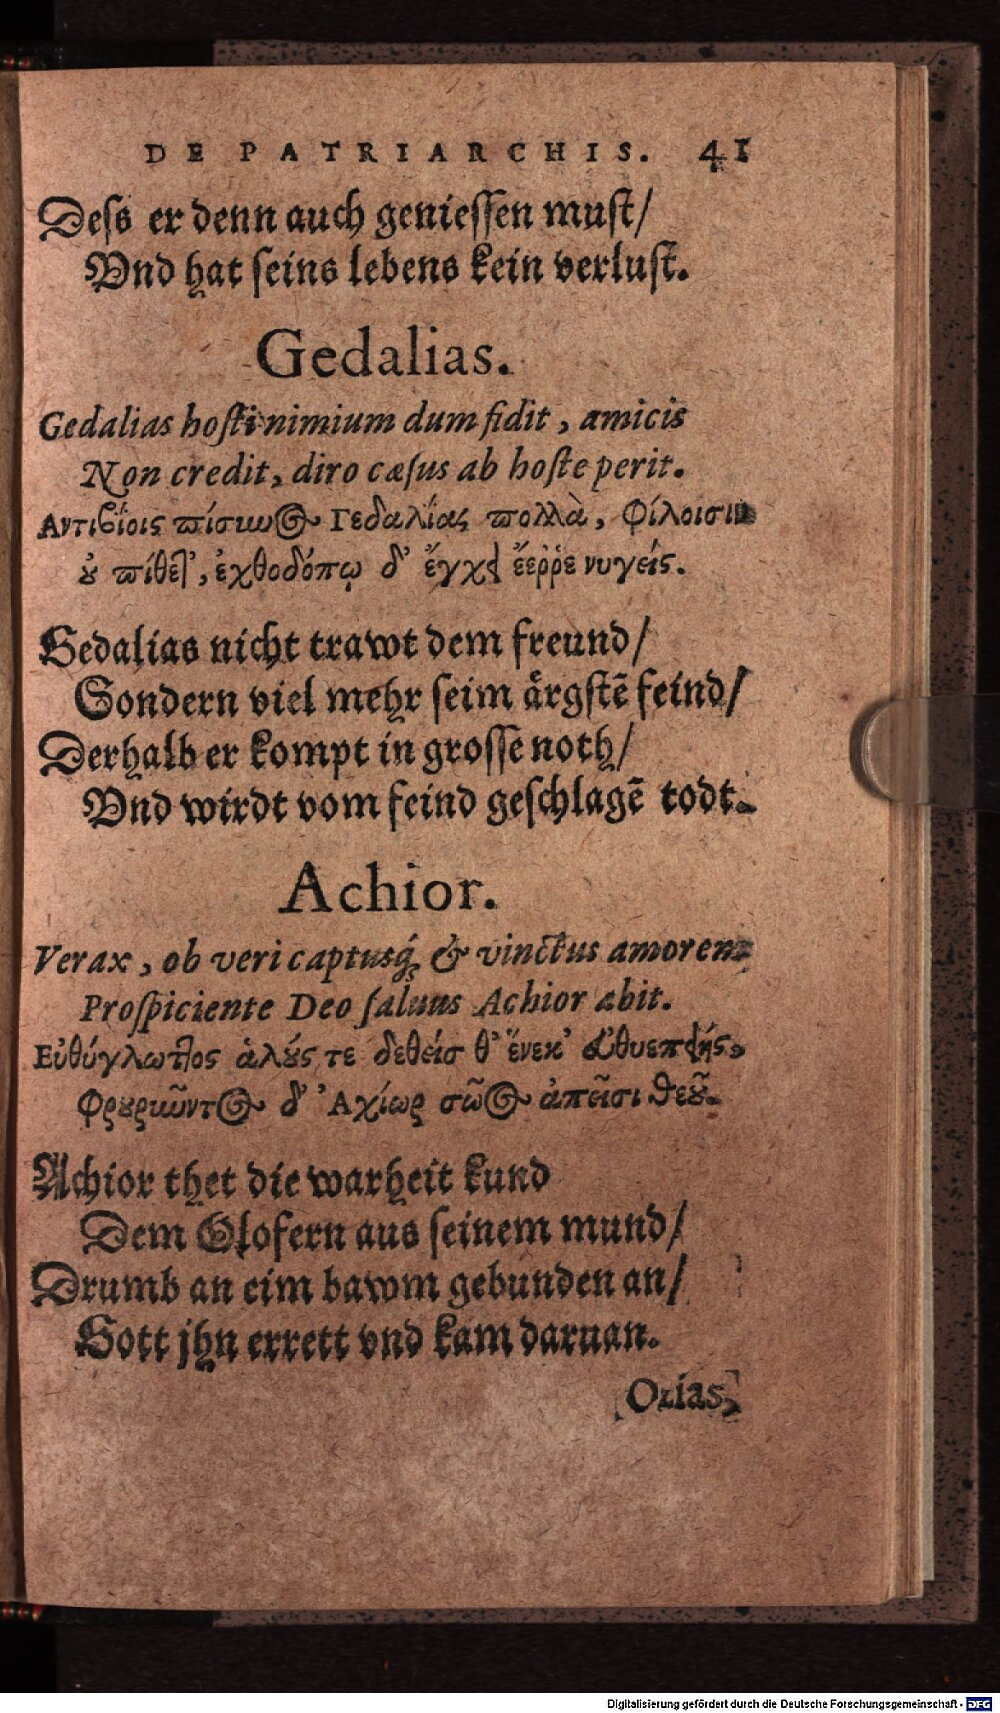 DE PATRIARCHIS. 41
Dess er denn auch geniessen must/
Vnd hat seins lebens kein verlust.
Gedalias.
Gedalias hosti nimium dum fidit, amicis
Non credit, diro cæsus ab hoste perit.
Αντιβίοις πίσυνος Γεδαλίας πολλὰ, φίλοισιν
ȣ πίθετ', ἐχθοδόπῳ δ' ἔγχει ἔερρε νυγείς.
Gedalias nicht trawt dem freund/
Sondern viel mehr seim årgstē feind/
Derhalb er kompt in grosse noth/
Vnd wirdt vom feind geschlagē todt.
Achior.
Verax, ob veri captusq́; & vinctus amorem
Prospiciente Deo saluus Achior abit.
Εὐθύγλωττος ἁλούς τε δεθείσ θ' ἕνεκ' εὐθυεπείης,
Φρȣρȣντος δ' Ἀχίωρ σῶος ἀπεῖσι θεȣ͂.
Achior thet die warheit kund
Dem Olofern aus seinem mund/
Drumb an eim bawm gebunden an/
Gott jhn errett vnd kam daruan.
Ozias,
Digitalisierung gefördert durch die Deutsche Forschungsgemeinschaft - DFG